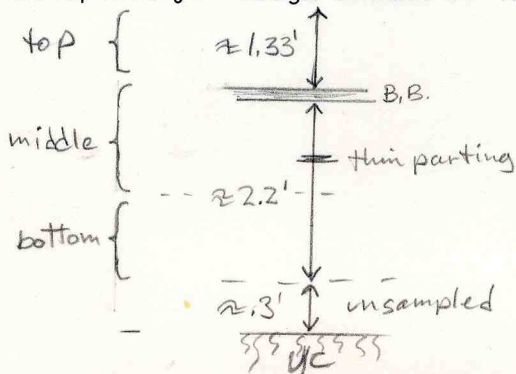 top
≈1.33'
B.B.
middle
thin parting
≈2.2'
bottom
≈.3'
unsampled
UC